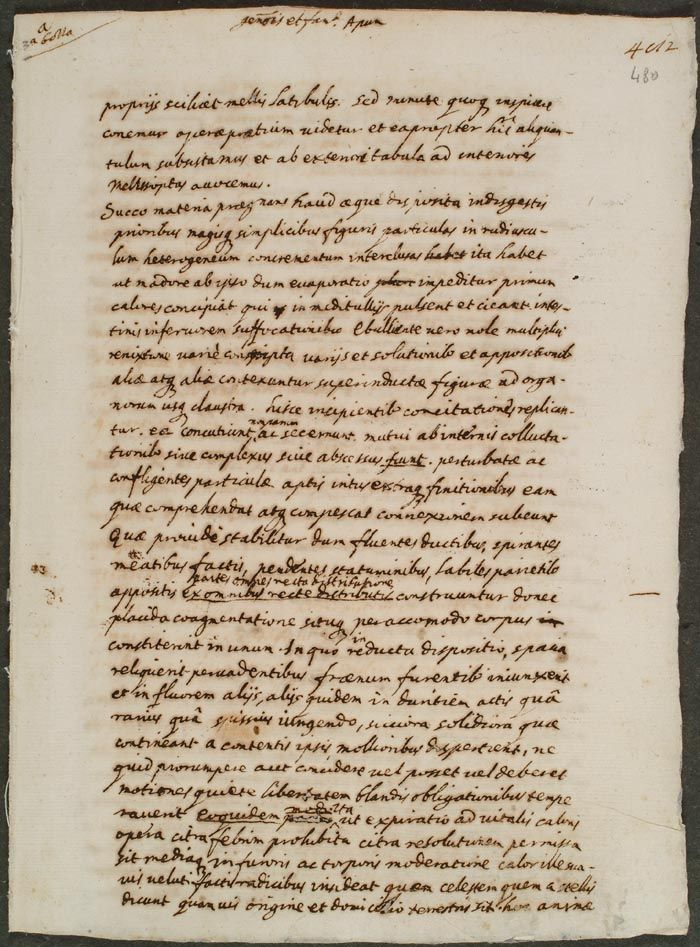 a
Apum
412
480
proprijs scilicet mellis latibulis. Sed minute quoq inspicere
conemur operæpretium videtur et ea propter his aliquan-
tulum subsistamus et ab exteriori tabula ad interiores
avocemus.
Succo materia prægnans haud æque disposita indigestis
prioribus magisq simplicibus figuris particulas in radiuscu-
lum heterogeneum concrementum interclusas habet ita habet
ut madore ab ipso dum evaporatio impeditur primum
calores concipiat qui in meditullijs pulsent et cieant intes-
tinis infervorem suffocationibs Ebulliente vero mole multiplici
renixione variè varijs et solutionibs et appositionib
aliæ atq aliæ contexuntur superinductæ figuræ ad orga-
norum usq claustra. husce incipientib concitationes replican-
tur. ac secernunt mutui ab internis collucta-
tionibs sive complexus sive abscessus fiunt. perturbatæ ac
confligentes particulæ aptis intus extraq finitionibus eam
quæ comprehendat atq compescat connexionem subeunt
Quæ proinde stabilitur dum fluentes ductibus, spirantes
meatibus factis, pendentes staturninibus, labiles parietibs
partes omnes recta distributione
appositis ex omnibus recte distributis construuntur donec
placida coagmentatione situq peraccomodo corpus in
constiterint in unum. In quo in reducta dispositio, spatia
reliquerit pervadentibus frænum furentib iniunxerit
et in fluorem alijs, alijs quidem in duritiem actis quâ
rarius quâ spissius iungendo, siccora solidiora quæ
contineant a contentis ipsis mollioribus dispescient, ne
quid prorumpere aut concidere vel posset vel deberet
motiones quiete libertatem blandis obligationibus tempe
raverit evquidem ut expiratio ad vitalis caloris
opera citra febrim prohibita citra resolutionem permissa
sit mediaq in furoris ac torporis moderatione calor ille sua-
vis veluti facti radicibus insideat quem celestem quem a stellis
dicunt quamvis origine et domicilio terrestris sit. hoc animæ